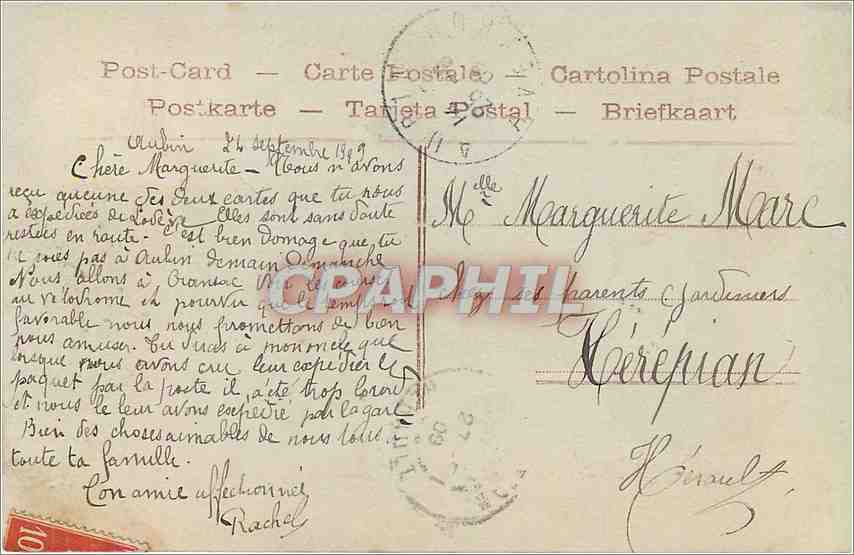 Post-Card — Carte Postale — Cartolina Postale
Postkarte — Tarjeta Postal — Briefkaart
Aubin 24 septembre 1909
Chère Marguerite - Nous n'avons
reçu aucune des deux cartes que tu nous
a expédiées de Lodève. Elles sont sans doute
restées en route - C'est bien domage que tu
ne soies pas à Aubin demain dimanche
Nous allons à Cransac voir les courses
au vélodrome et pourvu que le temps soit
favorable nous nous promettons de bien
nous amuser. Tu diras à mon oncle que
lorsque nous avons cru leur expédier le
paquet par la poste il a été trop lourd
et nous le leur avons expédié par la gare
Bien des choses aimables de nous tous
toute ta famille.
Ton amie affectionnée
Rachel
Mlle Marguerite Marc
chez ses parents (Jardiniers
Hérépian
Hérault
CPAPHIL
27
09
10